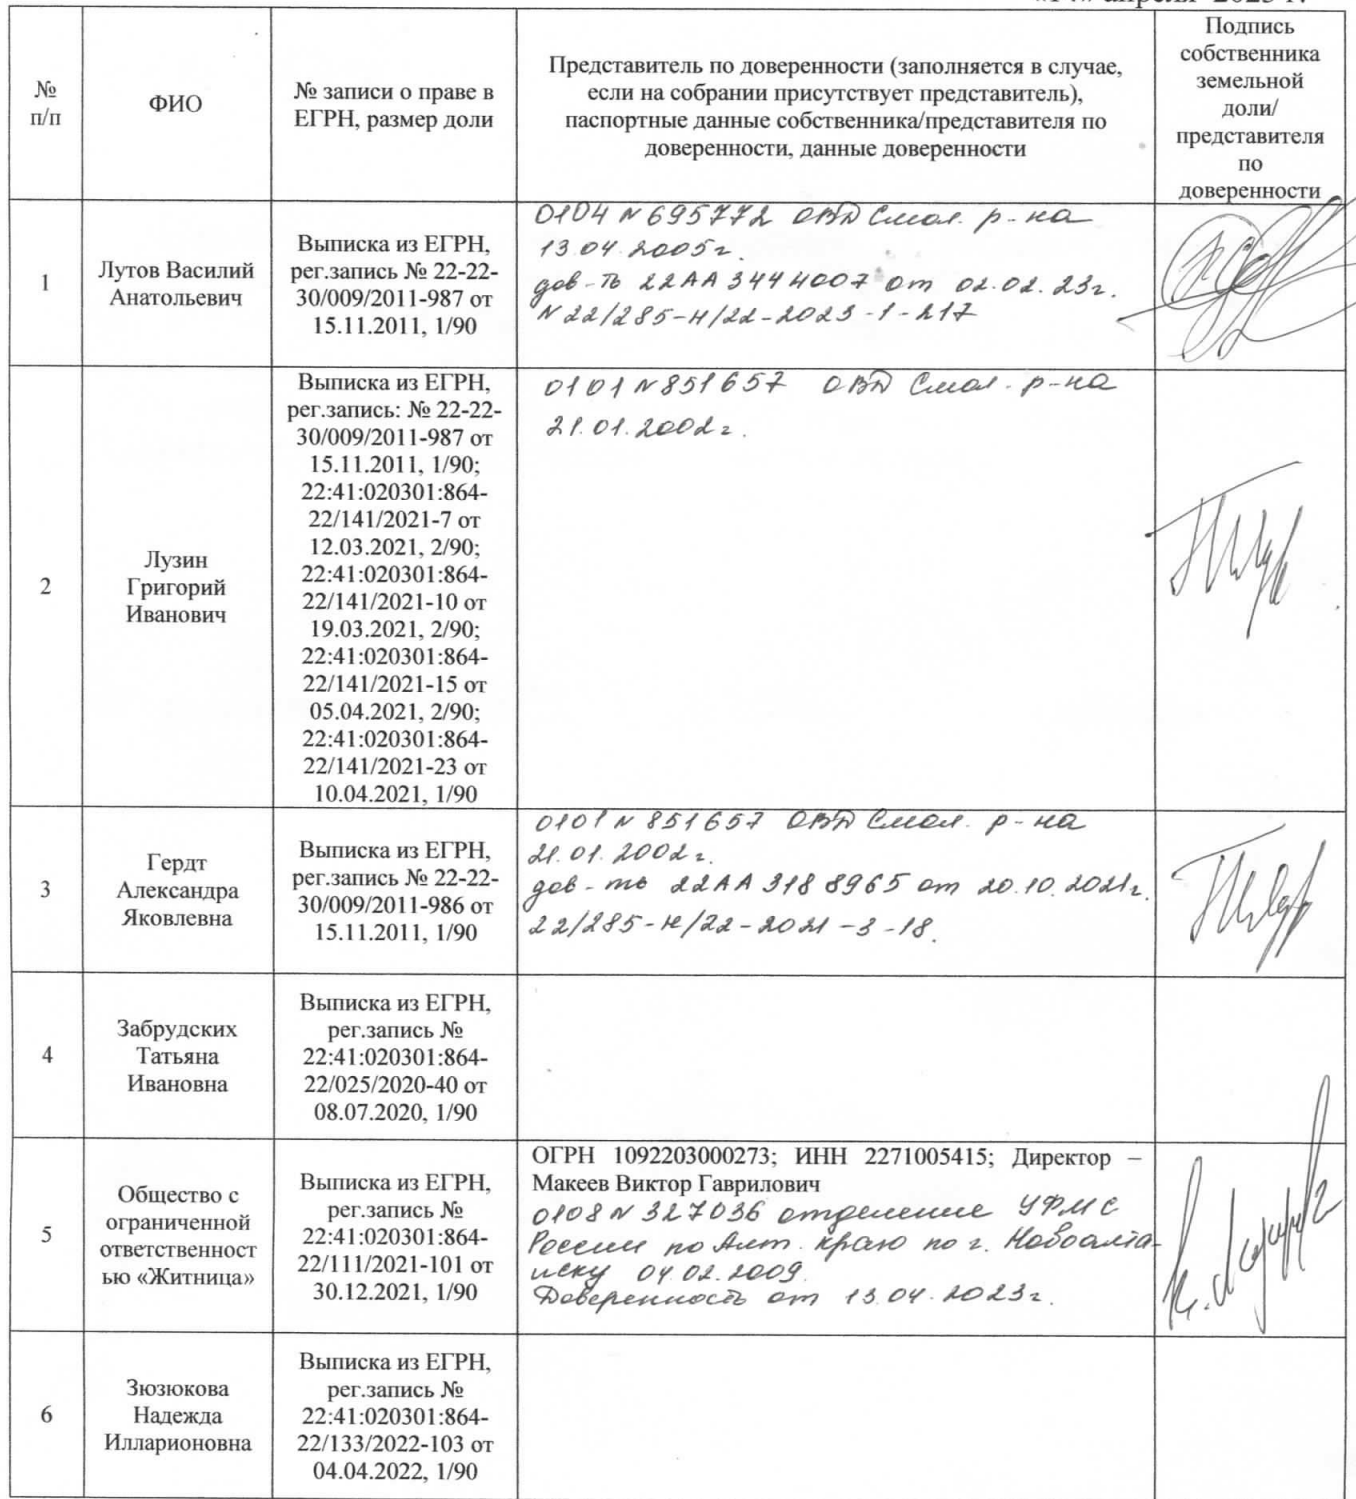 апреля 2023 г.
№
п/п
ФИО
№ записи о праве в
ЕГРН, размер доли
Представитель по доверенности (заполняется в случае,
если на собрании присутствует представитель),
паспортные данные собственника/представителя по
доверенности, данные доверенности
Подпись
собственника
земельной
доли/
представителя
по
доверенности
1
Лутов Василий
Анатольевич
Выписка из ЕГРН,
рег.запись № 22-22-
30/009/2011-987 от
15.11.2011, 1/90
0104 N 695772 ОВД Смол. р-на
13.04.2005г.
дов-ть 22АА 3444007 от 02.02.23г.
N 22/285-н/22-2023-1-217
2
Лузин
Григорий
Иванович
Выписка из ЕГРН,
рег.запись: № 22-22-
30/009/2011-987 от
15.11.2011, 1/90;
22:41:020301:864-
22/141/2021-7 от
12.03.2021, 2/90;
22:41:020301:864-
22/141/2021-10 от
19.03.2021, 2/90;
22:41:020301:864-
22/141/2021-15 от
05.04.2021, 2/90;
22:41:020301:864-
22/141/2021-23 от
10.04.2021, 1/90
0101 N 851657 ОВД Смол. р-на
21.01.2002г.
3
Гердт
Александра
Яковлевна
Выписка из ЕГРН,
рег.запись № 22-22-
30/009/2011-986 от
15.11.2011, 1/90
0101 N 851657 ОВД Смол. р-на
21.01.2002г.
дов-ть 22АА 3188965 от 20.10.2021г.
22/285-н/22-2021-3-18.
4
Забрудских
Татьяна
Ивановна
Выписка из ЕГРН,
рег.запись №
22:41:020301:864-
22/025/2020-40 от
08.07.2020, 1/90
5
Общество с
ограниченной
ответственност
ью «Житница»
Выписка из ЕГРН,
рег.запись №
22:41:020301:864-
22/111/2021-101 от
30.12.2021, 1/90
ОГРН 1092203000273; ИНН 2271005415; Директор –
Макеев Виктор Гаврилович
0108 N 327036 отделение УФМС
России по Алт. краю по г. Новоалта-
йску 04.02.2009.
Доверенность от 13.04.2023г.
6
Зюзюкова
Надежда
Илларионовна
Выписка из ЕГРН,
рег.запись №
22:41:020301:864-
22/133/2022-103 от
04.04.2022, 1/90